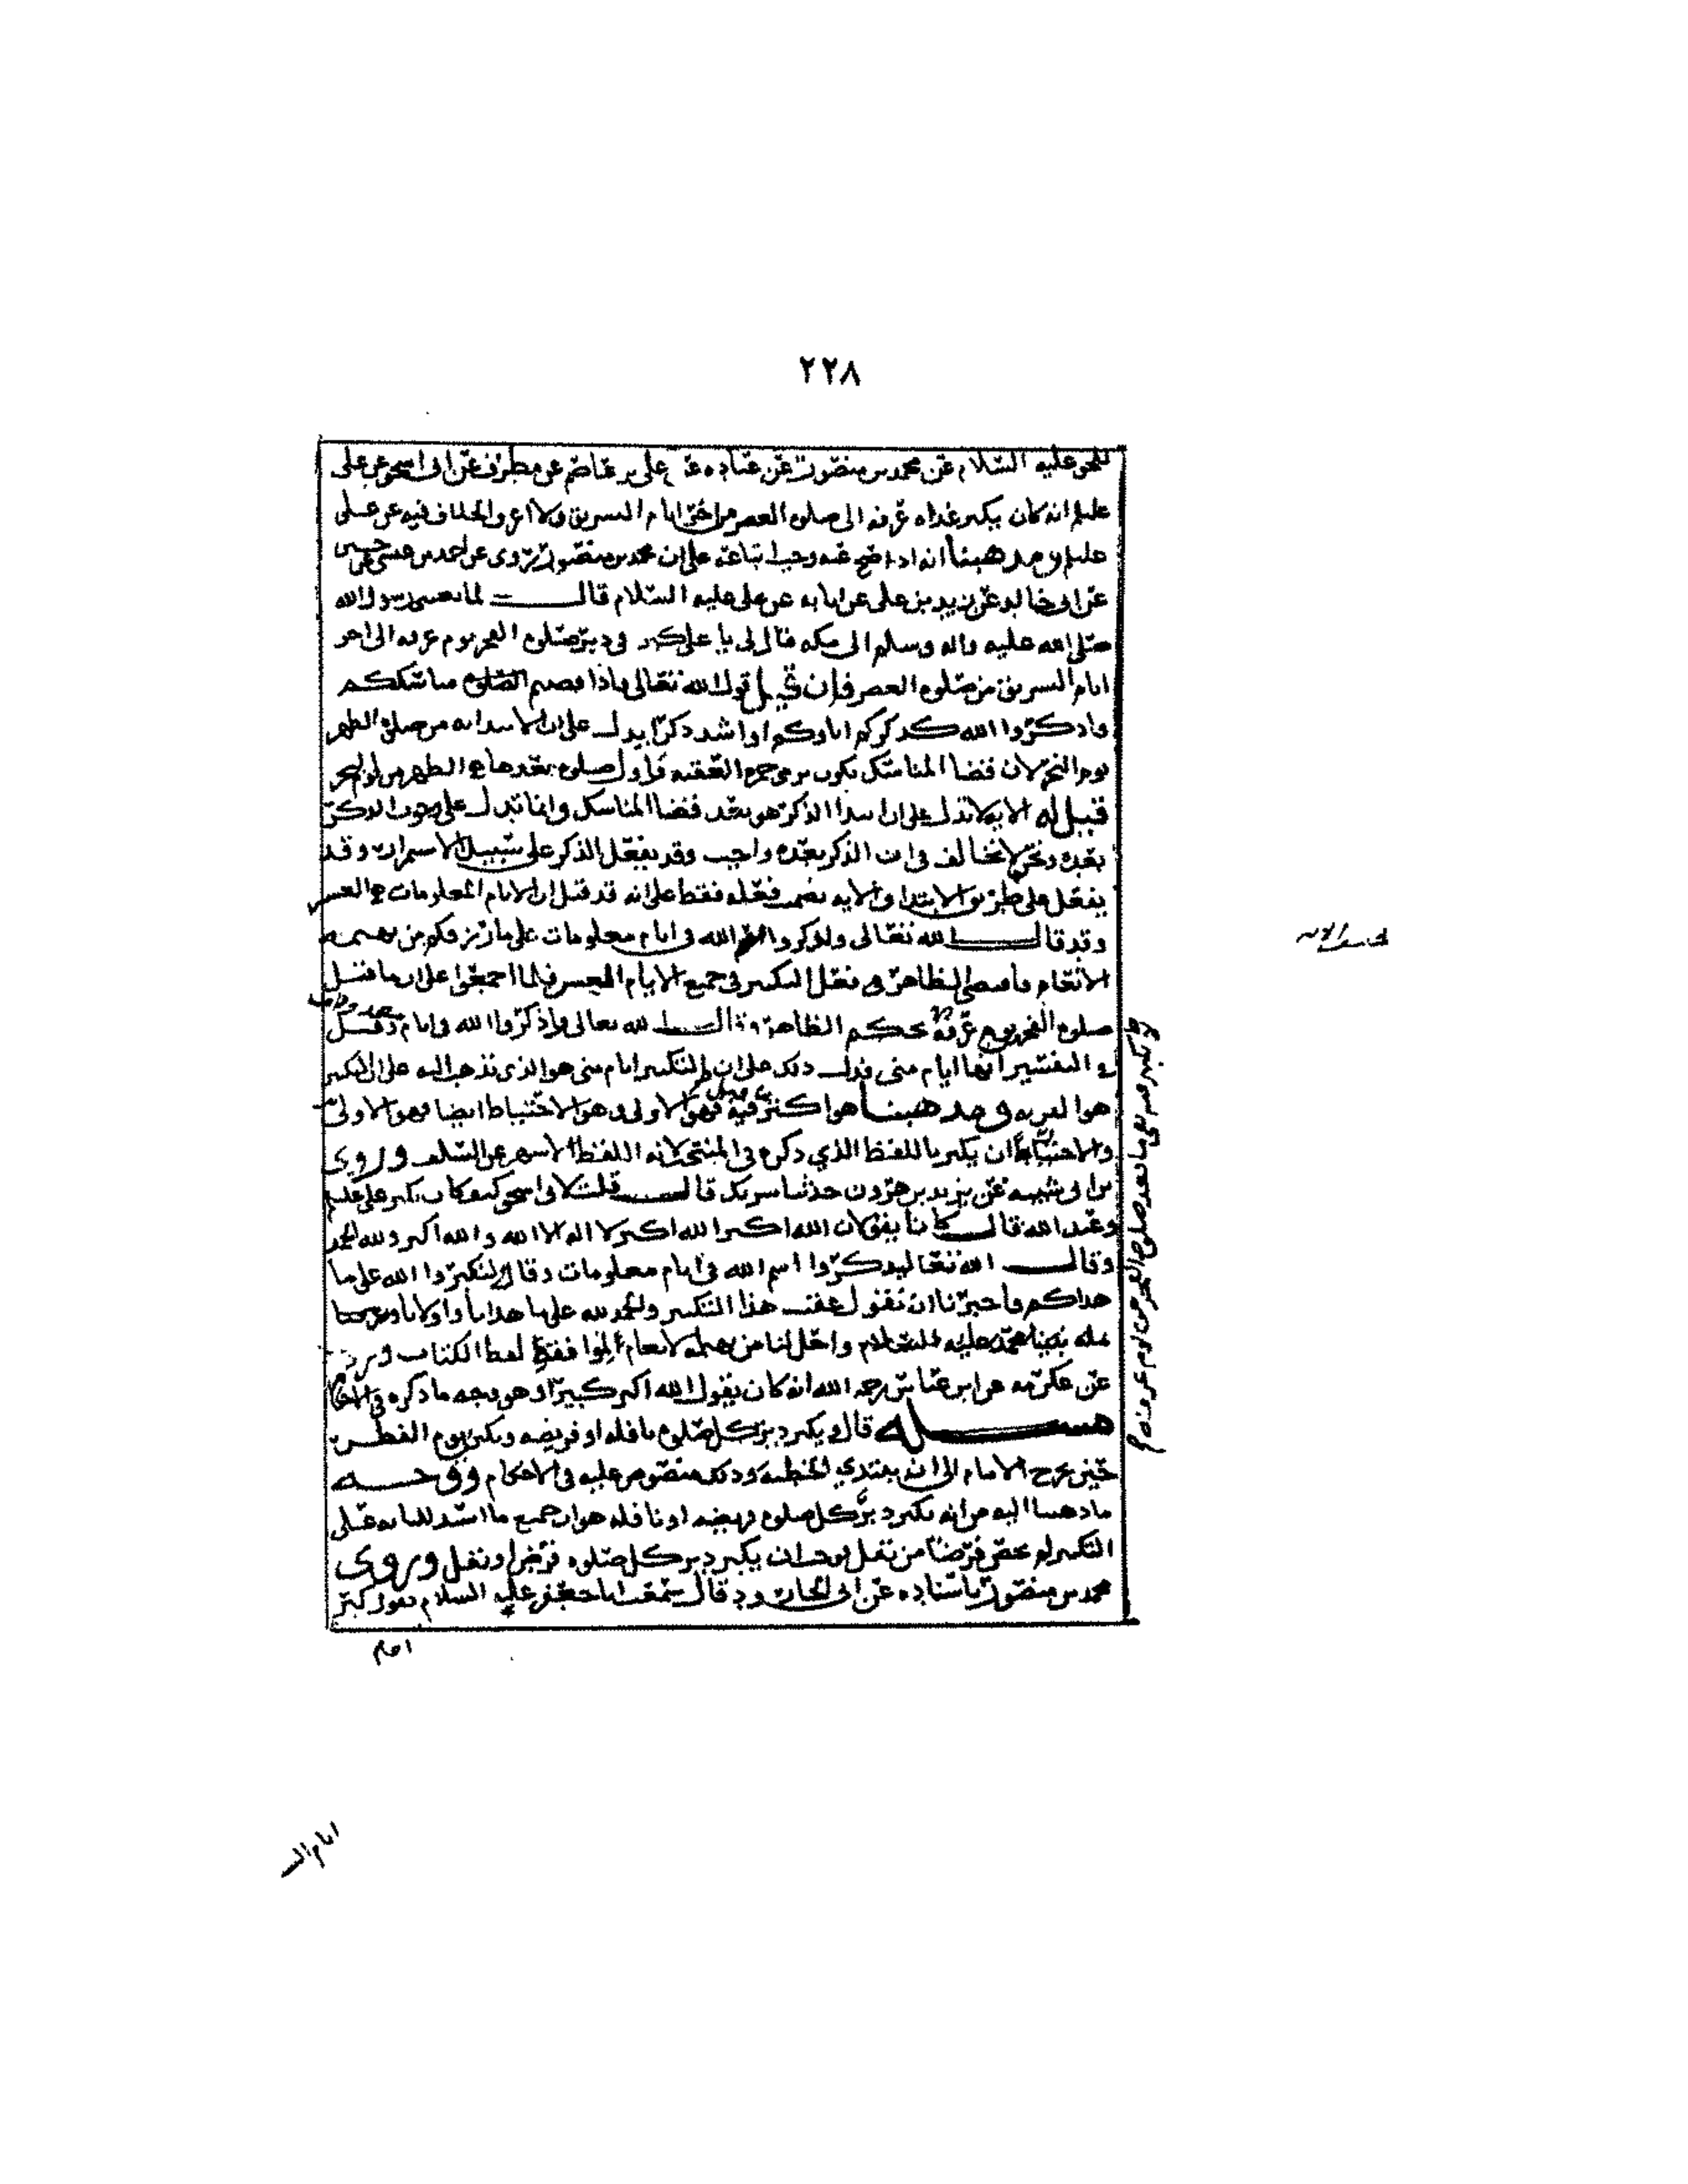 ٢٢٨
عليه السلام عن محمد بن منصور عن عباده عن علي بن عاصم عن مطرف عن ابى اسحق عن على
عليلم انه كان يكبر غداه عرفه الى صلوه العصر من اخر ايام التسريق ولا اعرف الخلاف فيه عن على
عليلم ومذهبنا انه اذا صح عنه وجب اتباعه على ان محمد بن منصور روى عن احمد بن عيسى عن حسين
عن ابى خالد عن زيد بن على عن ابايه عن على عليه السلام قال لما بعثنى رسول الله
صلى الله عليه واله وسلم الى مكه قال لى يا على كبر فى دبر صلوه الفجر يوم عرفه الى اخر
ايام التسريق من صلوه العصر فإن قيل قول الله تعالى فاذا قضيتم الصلوه مناسككم
فاذكروا الله كذكركم اباوكم او اشد ذكرا يدل على ان الابتدا به من صلوه الظهر
يوم النحر لان قضا المناسك يكون برمى جمره العقبه واول صلوه بعدها هى الظهر من يوم النحر
قيل له الايه لا تدل على ان ابتدا الذكر هو بعد قضا المناسك وانما تدل على وجوب الذكر
بعده ونحن لا نخالف فى ان الذكر بعده واجب وقد يفعل الذكر على سبيل الاستمرار وقد
يفعل على طريق الابتدا والايه تضمنت فعله فقط على انه قد قيل ان الايام المعلومات هى العشر
وقد قال الله تعالى ويذكروا اسم الله فى ايام معلومات على ما رزقهم من بهيمه
الانعام فاقتضى الظاهر فعل التكبير فى جميع الايام العشر فلما اجمعوا على ان ما قبل
صلوه الفجر يوم عرفه بحكم الظاهر وقال الله تعالى واذكروا الله فى ايام معدودات وقيل
فى التفسير انها ايام منى فدل ذلك على ان التكبير ايام منى هو الذى نذهب اليه على ان التكبير
هو القربه ومذهبنا هو اكثر فيه فهو الاولى وهو الاحتياط ايضا فهو الاولى
والاختيار ان يكبر باللفظ الذي ذكره فى المنتخب لانه اللفظ الاشهر عن السلف وروى
بن ابى شيبه عن يزيد بن هرون حدثنا سريك قال قلت لابى اسحق كيف كان يكبر على عليلم
وعبد الله قال كانا يقولان الله اكبر الله اكبر لا اله الا الله والله اكبر ولله الحمد
وقال الله تعالى ليذكروا اسم الله فى ايام معلومات وقال لتكبروا الله على ما
هداكم فاخبرنا ان نقول عقب هذا التكبير والحمد لله على ما هدانا واولانا
نبينا محمد عليه السلام واحل لنا من بهيمه الانعام لموافقه لفظ الكتاب
عن عكرمه عن ابن عباس رحمه الله انه كان يقول الله اكبر كبيرا وهو وجه ما ذكره فى
مسله قال ويكبر دبر كل صلوه نافله او فريضه ويكبر يوم الفطر
حين يخرج الامام الى ان يبتدي الخطبه وذلك منصوص عليه فى الاحكام ووجه
ما ذهبنا اليه من انه يكبر دبر كل صلوه فريضه او نافله هو ان جميع ما استدللنا به على
التكبير لم يخص فرضا من نفل فوجب ان يكبر دبر كل صلوه فرض او نفل وروى
محمد بن منصور باسناده عن ابى الجارود قال سمعت ابا جعفر عليه السلام يقول كبر
ايام
ايام التسـ